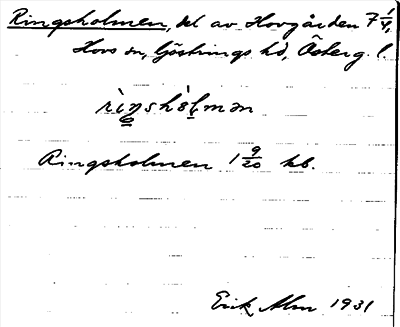 Ringsholmen, del av Hovgården 7 1/4,
Hovs sn, Göstrings hd, Österg. l.
rìŋshòlmən
Ringsholmen 1 9/20 hb.
Erik Alm 1931